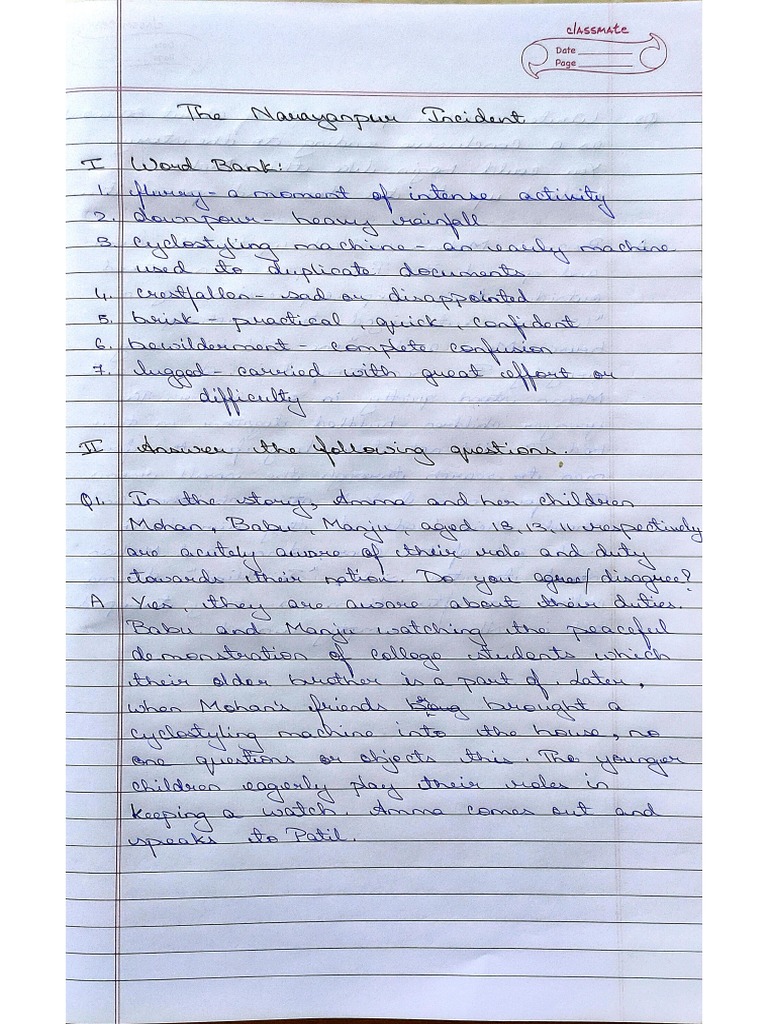 classmate
Date
Page
The Narayanpur Incident
I Word Bank:
1. flurry - a moment of intense activity
2. downpour - heavy rainfall
3. cyclostyling machine - an early machine
used to duplicate documents
4. crestfallen - sad or disappointed
5. brisk - practical, quick, confident
6. bewilderment - complete confusion
7. lugged - carried with great effort or
difficulty
II Answer the following questions.
Q1. In the story, Amma and her children
Mohan, Babu, Manju, aged 18, 13, 11 respectively
are acutely aware of their role and duty
towards their nation. Do you agree/disagree?
A Yes, they are aware about their duties.
Babu and Manju watching the peaceful
demonstration of college students which
their older brother is a part of. Later,
when Mohan's friends brought a
cyclostyling machine into the house, no
one questions or objects this. The younger
children eagerly play their roles in
keeping a watch. Amma comes out and
speaks to Patil.